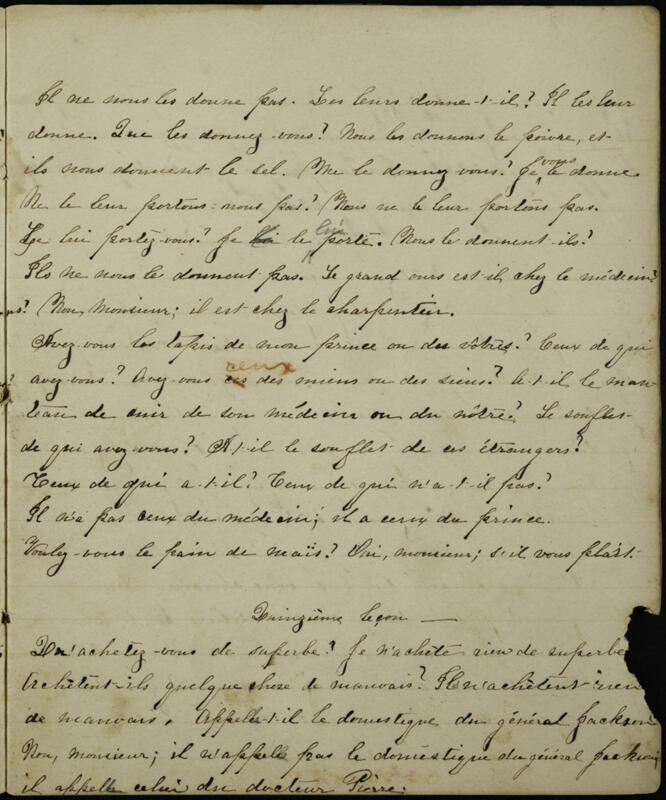 Il ne nous les donne pas. Les leurs donne-t-il? Il les leur
donne. Que les donnez-vous? Nous les donnons le poivre, et
ils nous donnent le sel. Me le donnez vous? Je vous le donne.
Ne le leur portons-nous pas? Nous ne le leur portons pas.
Le lui portez-vous? Je le lui porte. Nous le donnent-ils?
Ils ne nous le donnent pas. Le grand ours est-il chez le médecin?
Non, Monsieur; il est chez le charpentier.
Avez-vous les tapis de mon prince ou du vôtres? Ceux de qui
avez-vous? Avez-vous ces ceux des miens ou des siens? A-t-il le man-
teau de cuir de son médecin ou du nôtre? Le soufflet
de qui avez-vous? A-t-il le soufflet de ces étrangers?
Ceux de qui a-t-il? Ceux de qui n'a-t-il pas?
Il n'a pas ceux du médecin; il a ceux du prince.
Voulez-vous le pain de maïs? Oui, monsieur; s'il vous plaît.
Quinzième leçon
Qu'achetez-vous de superbe? Je n'achète rien de superbe
Achètent-ils quelque chose de mauvais? Ils n'achètent rien
de mauvais. Appelle-t-il le domestique du général Jackson
Non, monsieur; il n'appelle pas le domestique du général Jackson;
il appelle celui du docteur Pierre.